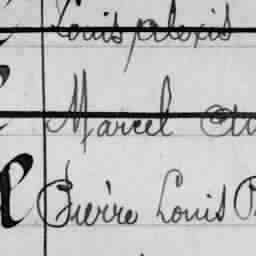 Louis Alexis
Marcel Au
Pierre Louis